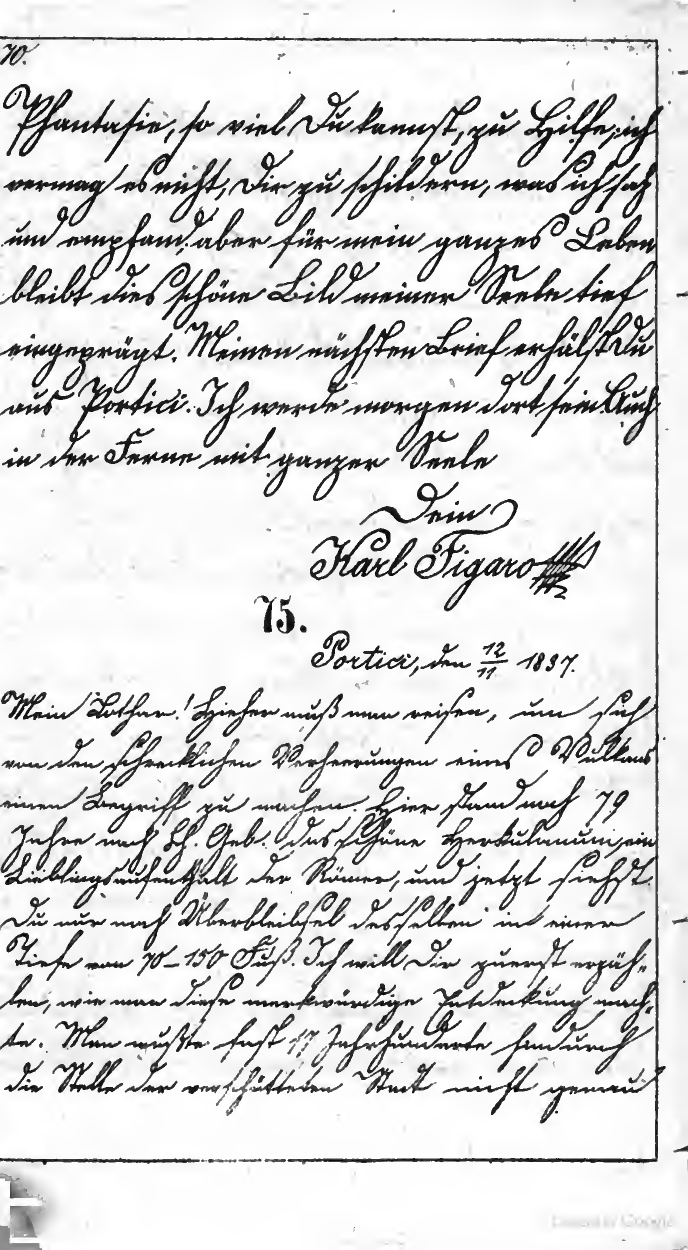 70.
Phantasie, so viel Du kannst, zu Hilfe; ich
vermag es nicht, Dir zu schildern, was ich sah
und empfand; aber für mein ganzes Leben
bleibt dies schöne Bild meiner Seele tief
eingeprägt. Meinen nächsten Brief erhälst Du
aus Portici. Ich werde morgen dort sein. Auch
in der Ferne mit ganzer Seele
Dein
Karl Figaro
75.
Portici, den 12/11 1837.
Mein Lothar! Hieher muß man reisen, um sich
von den schrecklichen Verheerungen eines Vulkans
einen Begriff zu machen. Hier stand noch 79
Jahre nach Ch. Geb. das schöne Herkulanum, ein
Lieblingsaufenthalt der Römer, und jetzt siehst
Du nur noch Überbleibsel desselben in einer
Tiefe von 70–150 Fuß. Ich will Dir zuerst erzäh-
len, wie man diese merkwürdige Entdeckung mach-
te. Man wußte fast 17 Jahrhunderte hindurch
die Stelle der verschütteten Stadt nicht genau
Google